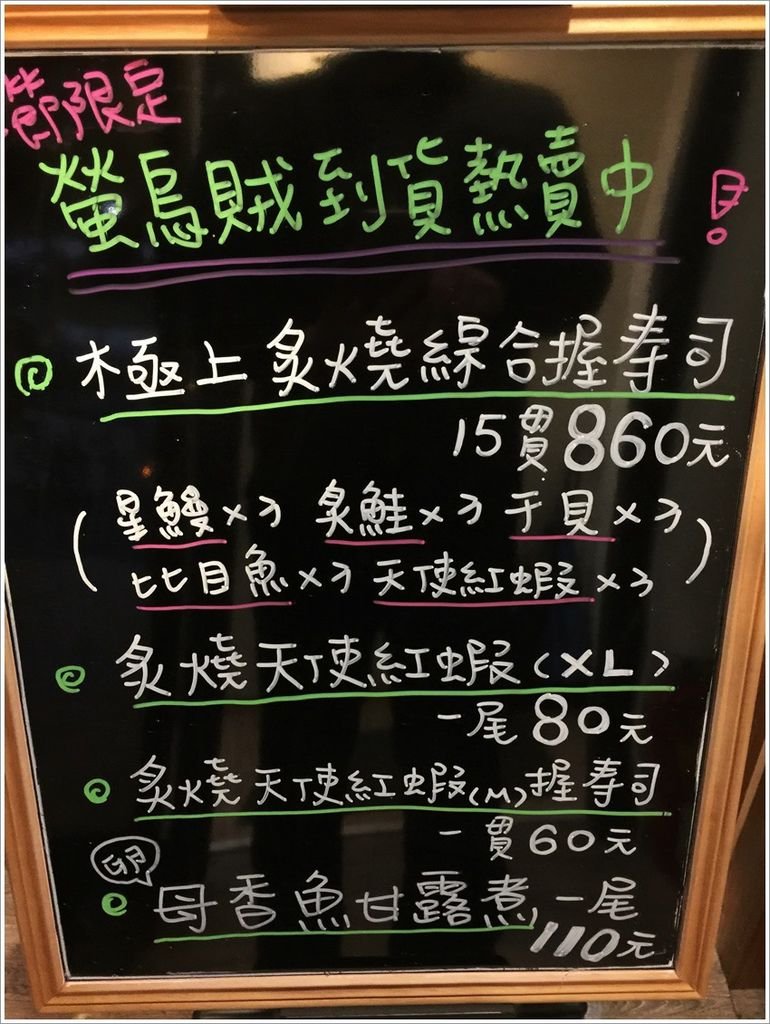 節限定
螢烏賊到貨熱賣中!
極上炙燒綜合握壽司
15貫860元
(星鰻×3 炙鮭×3 干貝×3
比目魚×3 天使紅蝦×3)
炙燒天使紅蝦(XL)
一尾80元
炙燒天使紅蝦(M)握壽司
一貫60元
卵
母香魚甘露煮一尾
110元